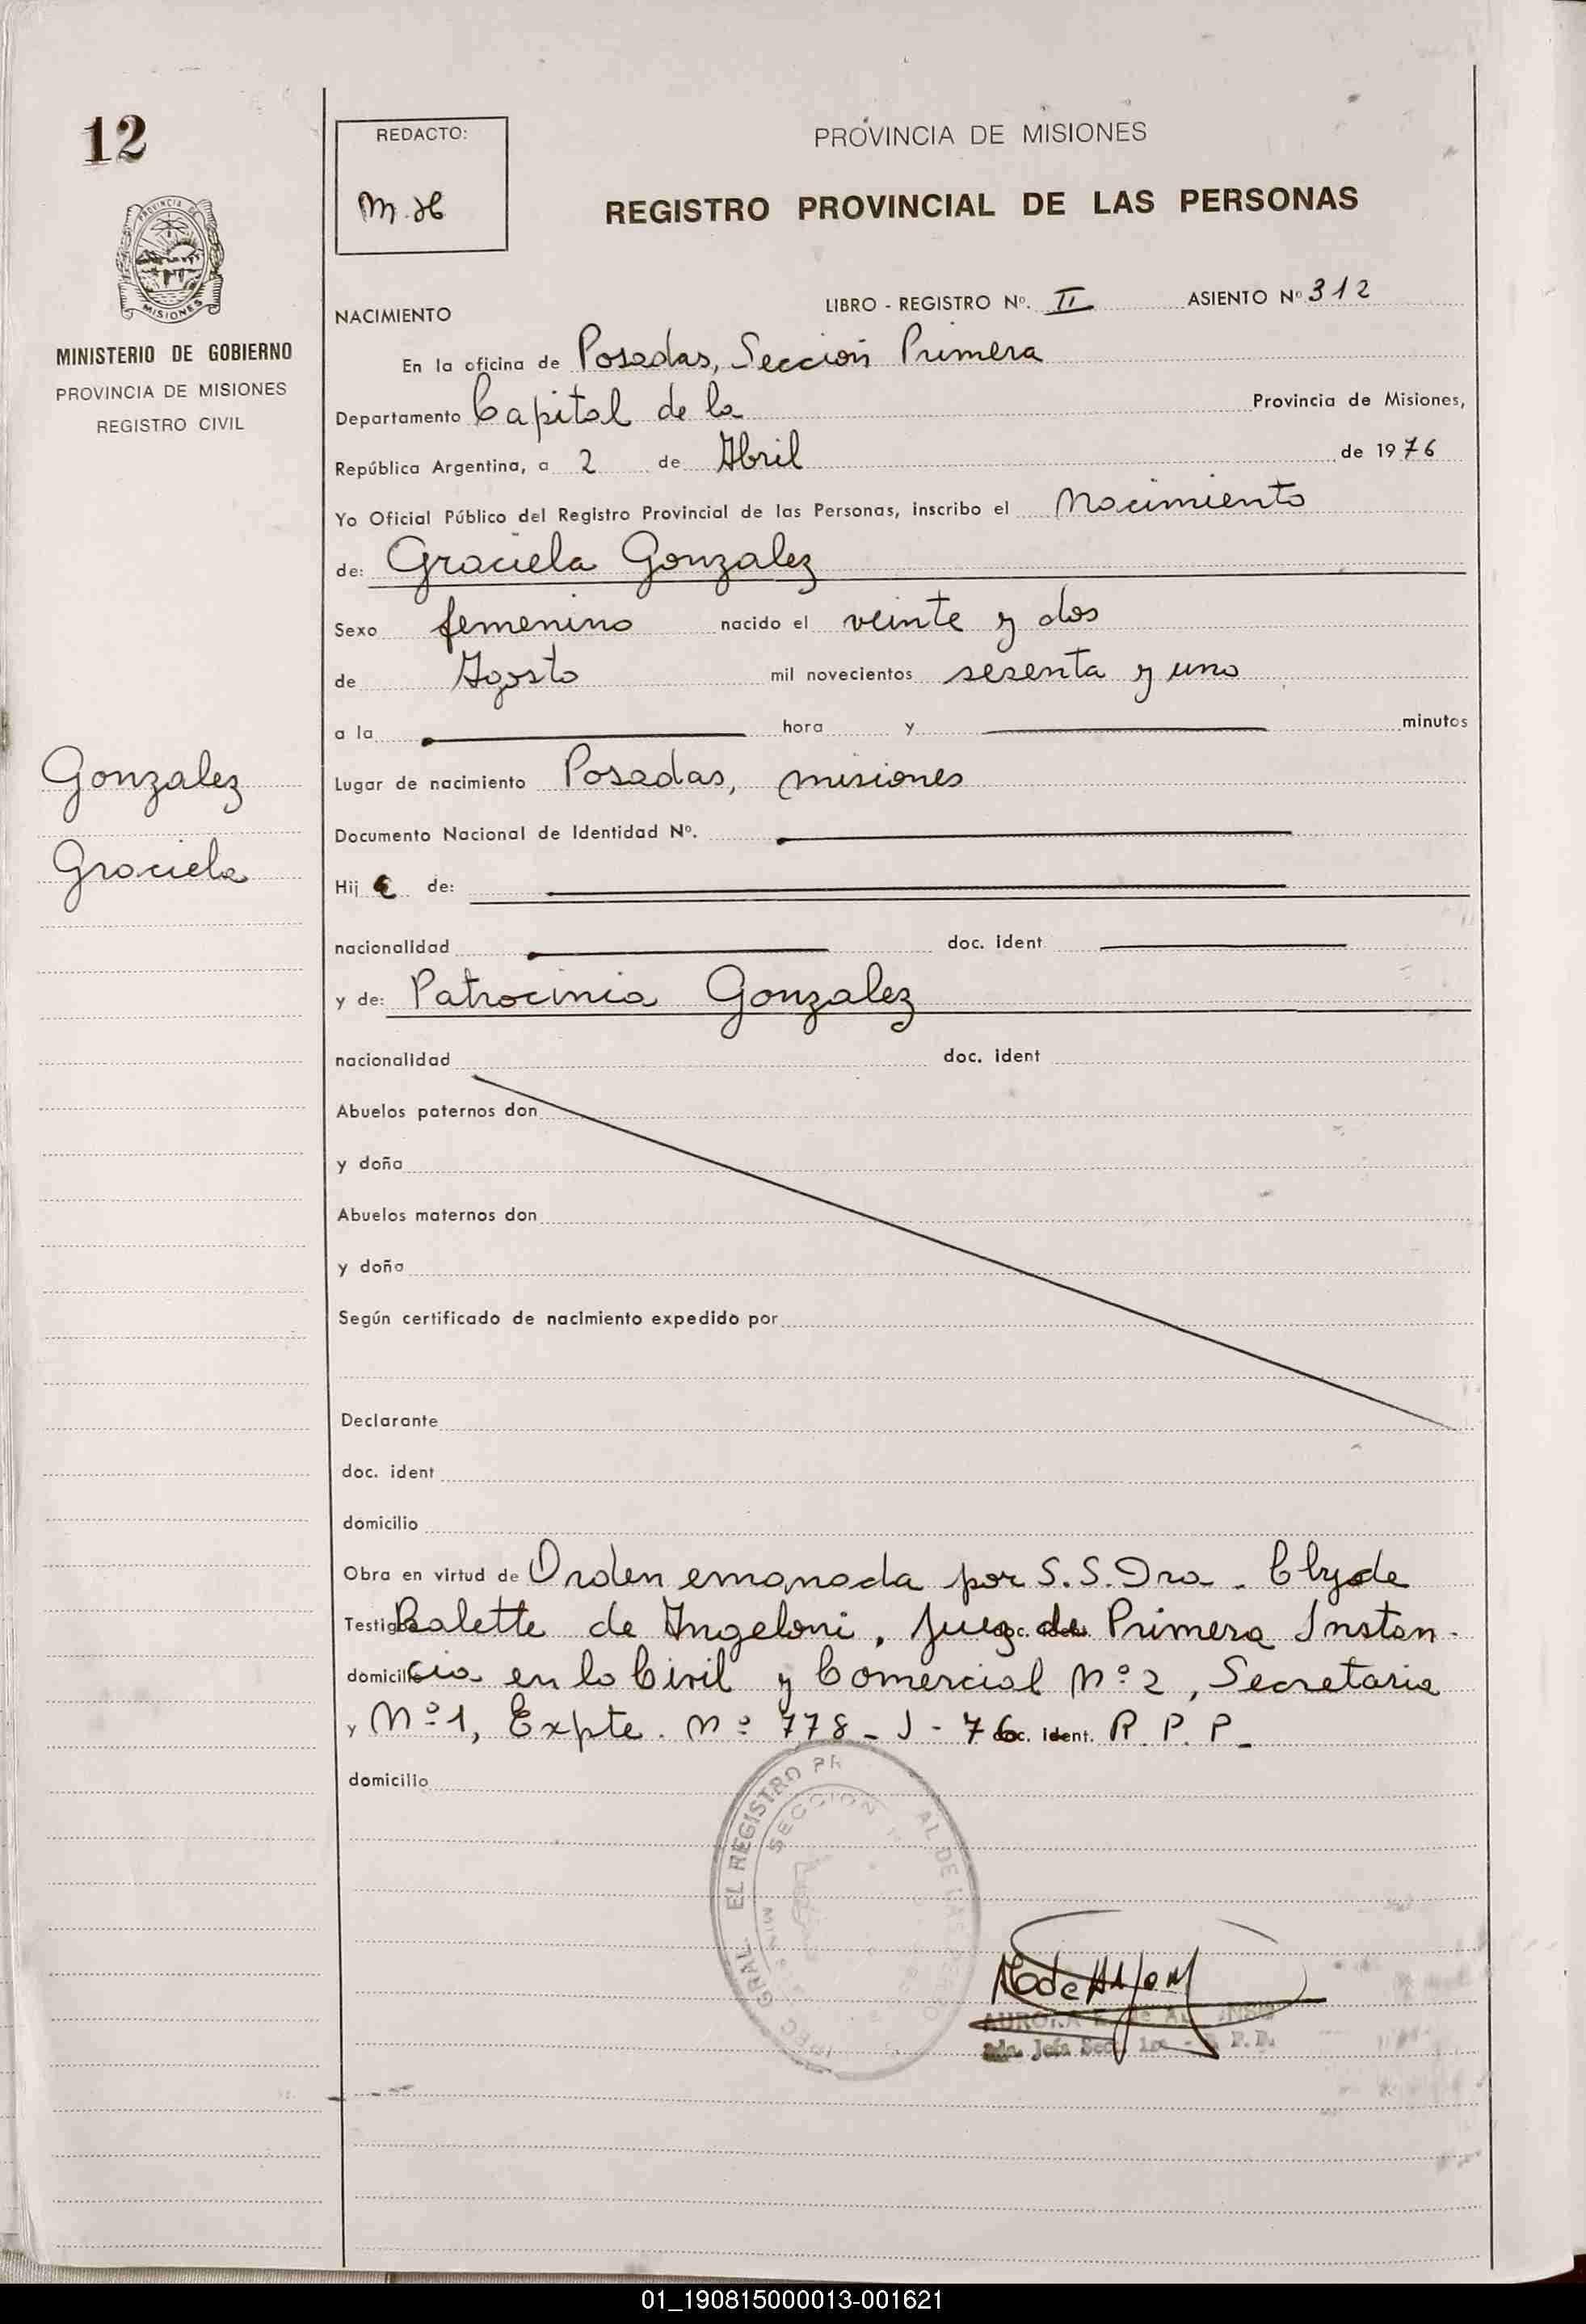 12
REDACTO:
M.H
PROVINCIA DE MISIONES
REGISTRO PROVINCIAL DE LAS PERSONAS
PROVINCIA DE
MISIONES
MINISTERIO DE GOBIERNO
PROVINCIA DE MISIONES
REGISTRO CIVIL
NACIMIENTO
LIBRO - REGISTRO Nº. II ASIENTO Nº 312
En la oficina de Posadas, Sección Primera
Departamento Capital de la Provincia de Misiones,
República Argentina, a 2 de Abril de 1976
Yo Oficial Público del Registro Provincial de las Personas, inscribo el Nacimiento
de: Graciela Gonzalez
Sexo femenino nacido el veinte y dos
de Agosto mil novecientos sesenta y uno
a la hora y minutos
Gonzalez
Graciela
Lugar de nacimiento Posadas, Misiones
Documento Nacional de Identidad Nº.
Hij a de:
nacionalidad doc. ident
y de: Patrocinia Gonzalez
nacionalidad doc. ident
Abuelos paternos don
y doña
Abuelos maternos don
y doña
Según certificado de nacimiento expedido por
Declarante
doc. ident
domicilio
Obra en virtud de Orden emanada por S.S. Dra. Clyde
Testigos Balette de Angeloni, Juez de Primera Instan-
domicilio cia en lo Civil y Comercial Nº 2, Secretaria
y Nº 1, Expte. Nº 778 - J - 76 doc. ident. R. P. P.
domicilio
GRAL. EL REGISTRO PR AL DE LAS PERSO
SECCION
AURORA E. de
Jefa Secc. 1ra - R.P.P.
01_190815000013-001621